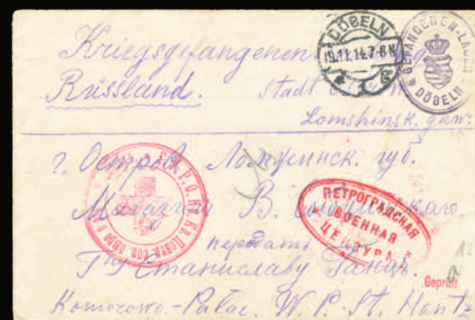 Kriegsgefangenen
DÖBELN
19.11.14.7-8N
GEFANGENEN-LAGER
DÖBELN
Russland. Stadt
Lomshinsk. guv.
г. Остров Ломжинск. губ.
Магазин В.
ПЕТРОГРАДСКАЯ
ВОЕННАЯ
ЦЕНЗУРА
передать
Гну Станиславу
Geprüft
Komorowo-Pałac. W. P. St.